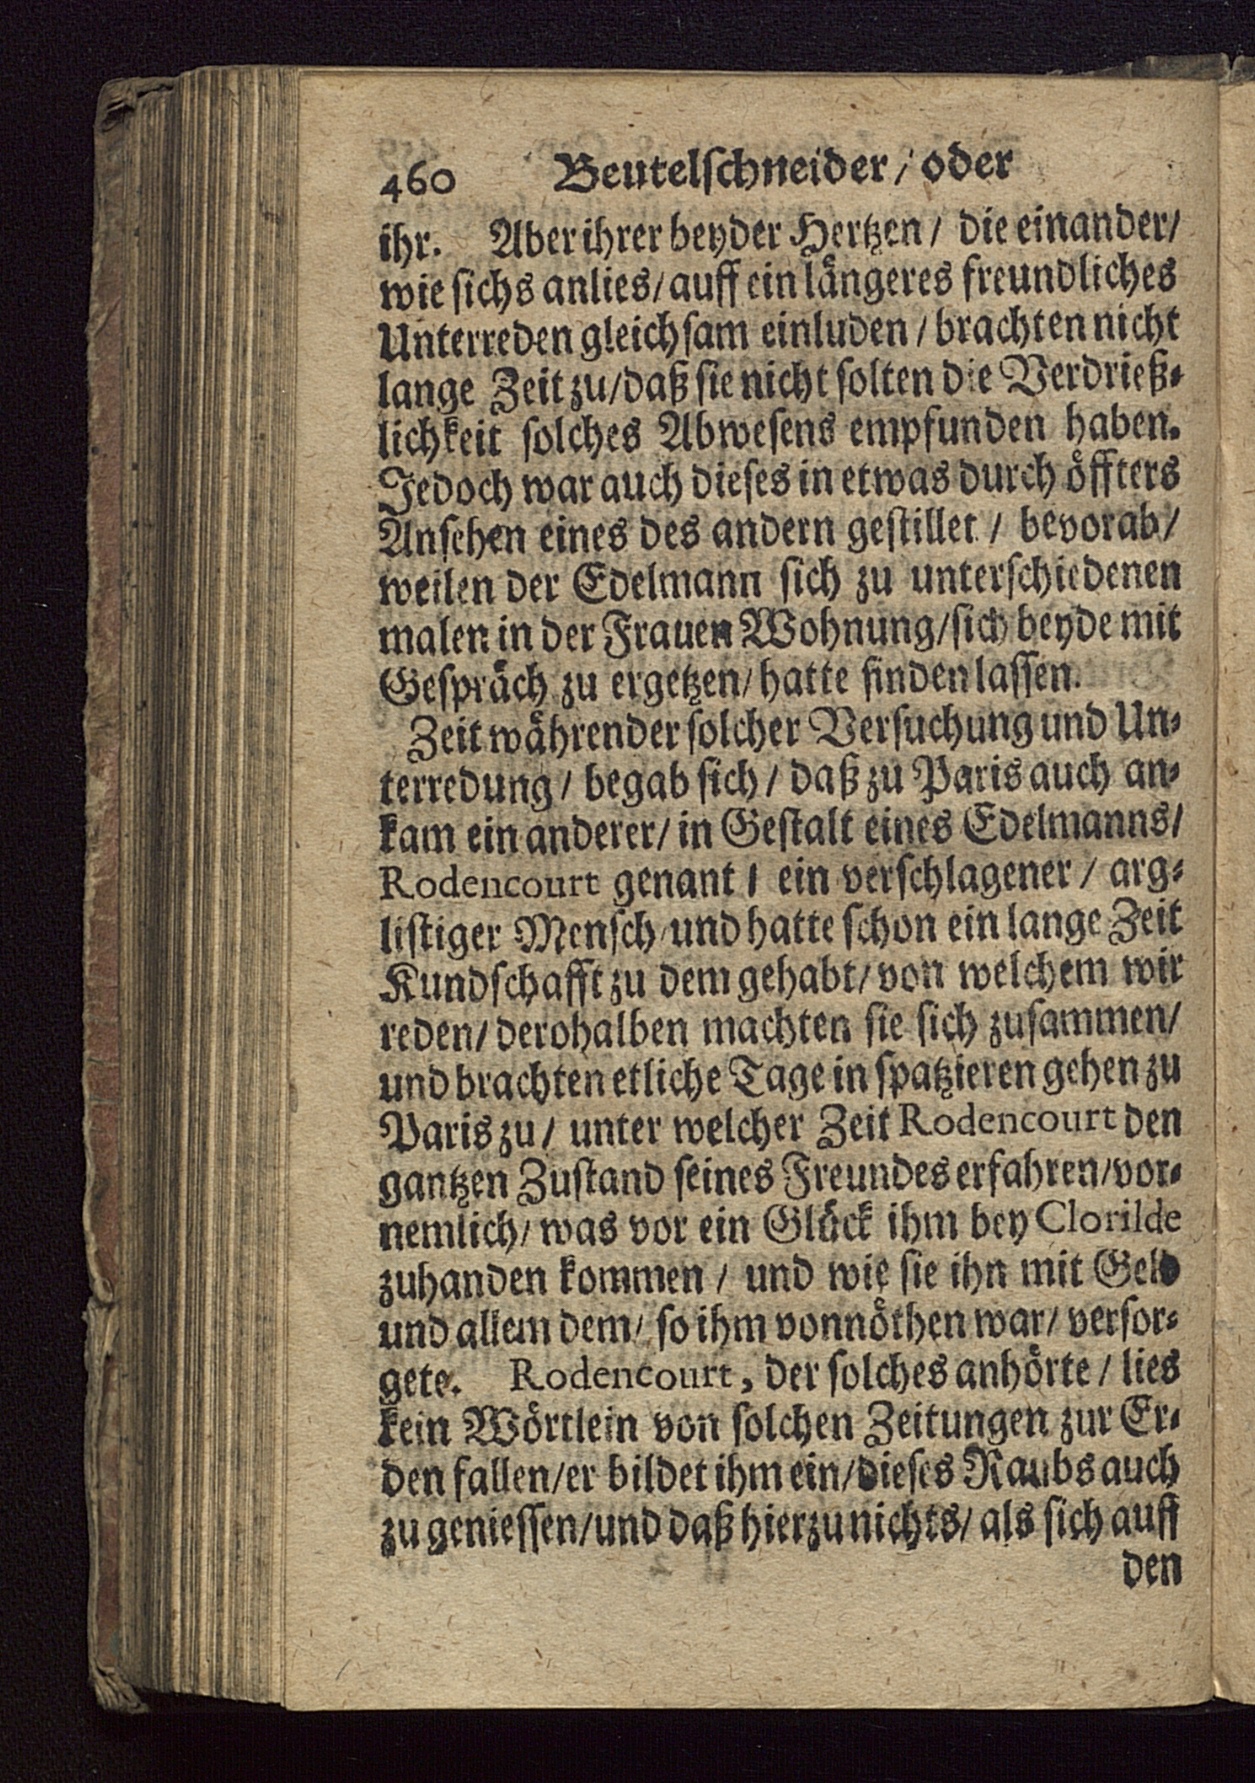 460 Beutelschneider / oder
ihr. Aber ihrer beyder Hertzen / die einander /
wie sichs anlies / auff ein längeres freundliches
Unterreden gleichsam einluden / brachten nicht
lange Zeit zu / daß sie nicht solten die Verdrieß-
lichkeit solches Abwesens empfunden haben.
Jedoch war auch dieses in etwas durch öffters
Ansehen eines des andern gestillet / bevorab /
weilen der Edelmann sich zu unterschiedenen
malen in der Frauen Wohnung / sich beyde mit
Gespräch zu ergetzen / hatte finden lassen.
Zeit währender solcher Versuchung und Un-
terredung / begab sich / daß zu Paris auch an-
kam ein anderer / in Gestalt eines Edelmanns /
Rodencourt genant / ein verschlagener / arg-
listiger Mensch / und hatte schon ein lange Zeit
Kundschafft zu dem gehabt / von welchem wir
reden / derohalben machten sie sich zusammen /
und brachten etliche Tage in spatzieren gehen zu
Paris zu / unter welcher Zeit Rodencourt den
gantzen Zustand seines Freundes erfahren / vor-
nemlich / was vor ein Glück ihm bey Clorilde
zuhanden kommen / und wie sie ihn mit Geld
und allem dem / so ihm vonnöthen war / versor-
gete. Rodencourt, der solches anhörte / lies
kein Wörtlein von solchen Zeitungen zur Er-
den fallen / er bildet ihm ein / dieses Raubs auch
zu geniessen / und daß hierzu nichts / als sich auff
den